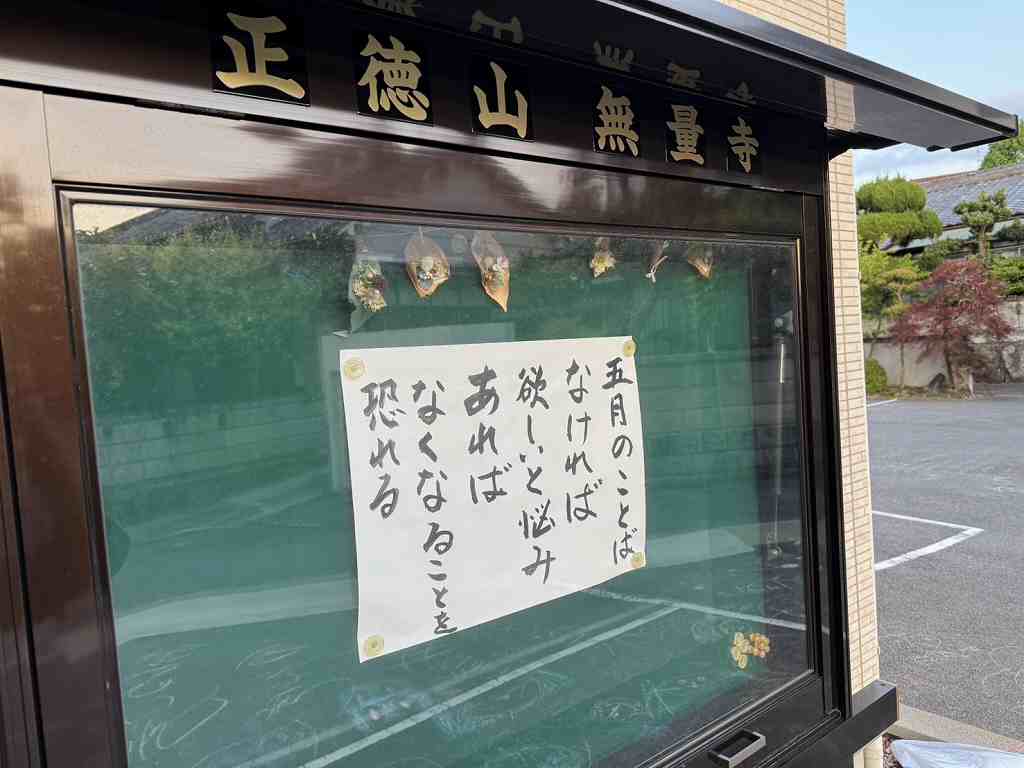 正徳山 無量寺
五月のことば
なければ
欲しいと悩み
あれば
なくなることを
恐れる